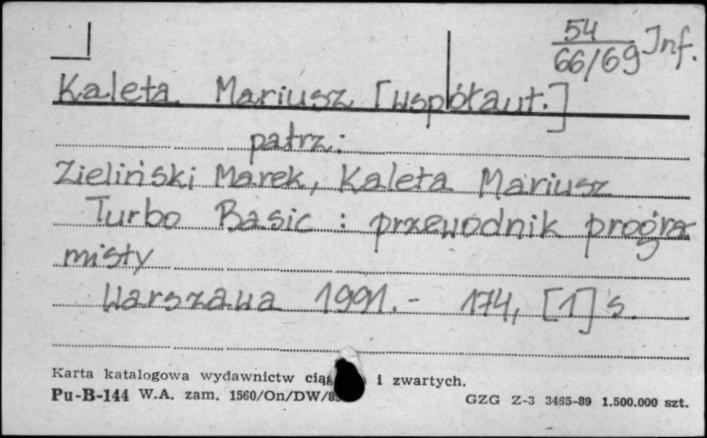 54
66/69 Inf.
Kaleta Mariusz [współaut.]
patrz:
Zieliński Marek, Kaleta Mariusz
Turbo Basic : przewodnik progra
misty
Warszawa 1991.- 174, [1] s.
Karta katalogowa wydawnictw i zwartych.
Pu-B-144 W.A. zam. 1560/On/DW/
GZG Z-3 3465-89 1.500.000 szt.